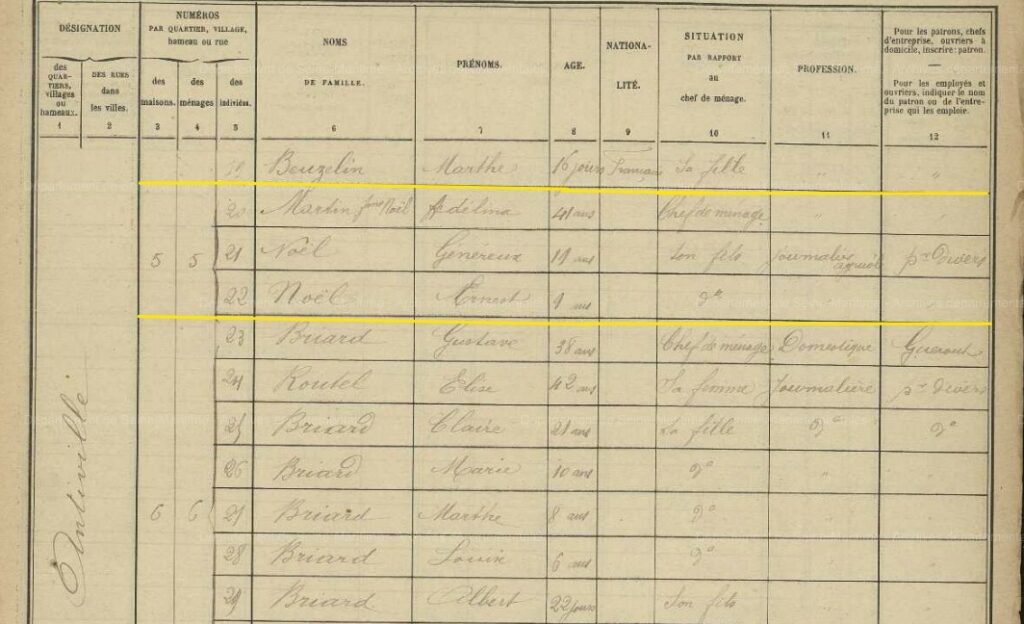 DÉSIGNATION
des QUARTIERS, villages ou hameaux.
1
DES RUES dans les villes.
2
NUMÉROS
PAR QUARTIER, VILLAGE, hameau ou rue
des maisons.
3
des ménages
4
des individus.
5
NOMS
DE FAMILLE.
6
PRÉNOMS.
7
AGE.
8
NATIONA-
LITÉ.
9
SITUATION
PAR RAPPORT
au
chef de ménage.
10
PROFESSION.
11
Pour les patrons, chefs
d'entreprise, ouvriers à
domicile, inscrire: patron.
Pour les employés et
ouvriers, indiquer le nom
du patron ou de l'entre-
prise qui les emploie.
12
Antiville
19 Beuzelin Marthe 16 jours Français Sa fille " "
20 Martin fme Noël Adélina 41 ans Chef de ménage " "
5 5 21 Noël Généreux 19 ans Son fils journalier agricole pr Divers
22 Noël Ernest 1 ans do
23 Briard Gustave 38 ans Chef de ménage Domestique Gueroul
24 Routel Elise 42 ans Sa femme Journalière pr Divers
25 Briard Claire 21 ans Sa fille do do
26 Briard Marie 10 ans do "
6 6 27 Briard Marthe 8 ans do "
28 Briard 6 ans do
29 Briard Albert 22 jours Son fils